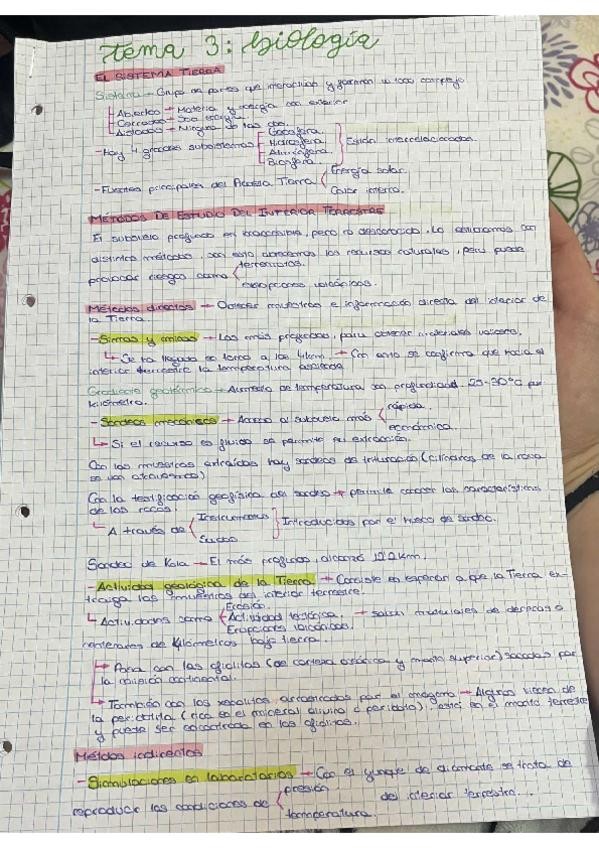 tema 3: biología
EL SISTEMA TIERRA
Sistema → Grupo de partes que interactúan y forman un todo complejo
Abiertos → Materia y energía con exterior
Cerrados → Solo energía
Aislados → Ninguna de las dos.
- Hay 4 grandes subsistemas Geosfera. Hidrosfera. Atmósfera. Biosfera. Están interrelacionados.
- Fuentes principales del Planeta Tierra Energía solar. Calor interno.
MÉTODOS DE ESTUDIO DEL INTERIOR TERRESTRE
El subsuelo profundo es inaccesible, pero no desconocido. Lo estudiamos con
distintos métodos, con esto obtenemos los recursos naturales, pero puede
provocar riesgos como terremotos. erupciones volcánicas.
Métodos directos → Obtener muestras e información directa del interior de
la Tierra.
- Simas y minas → Las más profundas, para obtener materiales valiosos.
↳ Se ha llegado en torno a los 4km. → Con esto se confirma que hacia el
interior terrestre la temperatura asciende
Gradiente geotérmico → Aumento de temperatura con profundidad. 25-30°C por
kilómetro.
- Sondeos mecánicos → Acceso al subsuelo más rápida. económica.
↳ Si el recurso es fluido se permite su extracción.
Con las muestras extraídas hay sondeos de trituración (cilindros de la roca
se van
Con la testificación geofísica del sondeo → permite conocer las características
de las rocas.
↳ A través de Instrumentos Sondas Introducidos por el hueco de sondeo.
Sondeo de Kola → El más profundo, alcanzó 12'2km.
- Actividad geológica de la Tierra → Consiste en esperar a que la Tierra ex-
traiga las muestras del interior terrestre.
↳ Actividades como Erosión. Actividad tectónica. Erupciones volcánicas. → sacan materiales de decenas o
centenares de kilómetros bajo tierra.
→ Pasa con las ofiolitas (de corteza oceánica y manto superior) sacadas por
la colisión continental.
→ También con los xenolitos, arrastrados por el magma → Algunos vienen de
la peridotita (rica en el mineral olivino o peridoto), está en el manto terrestre
y puede ser encontrada en las ofiolitas.
Métodos indirectos
- Simulaciones en laboratorios → Con el yunque de diamante se trata de
reproducir las condiciones de presión temperatura. del interior terrestre...